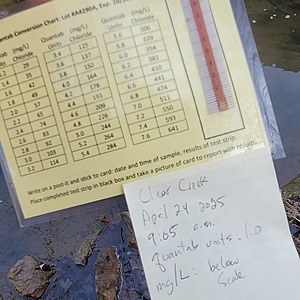 Quantab Conversion Chart: Lot #A4290A, Exp.
Quantab Units (mg/L) Chloride
Quantab Units (mg/L) Chloride
Quantab Units (mg/L) Chloride
3.4 125 5.6 306
3.6 137 5.8 329
3.8 150 6.0 354
4.0 164 6.2 381
4.2 178 6.4 410
4.4 193 6.6 441
4.6 209 6.8 474
4.8 226 7.0 511
5.0 244 7.2 550
5.2 263 7.4 593
3.2 114 5.4 284 7.6 641
Write on a post-it and stick to card: date and time of sample, results of test strip.
Place completed test strip in black box and take a picture of card to report with results.
Clear Creek
April 24 2025
9:05 a.m.
quantab units: 1.0
mg/L: below
Scale